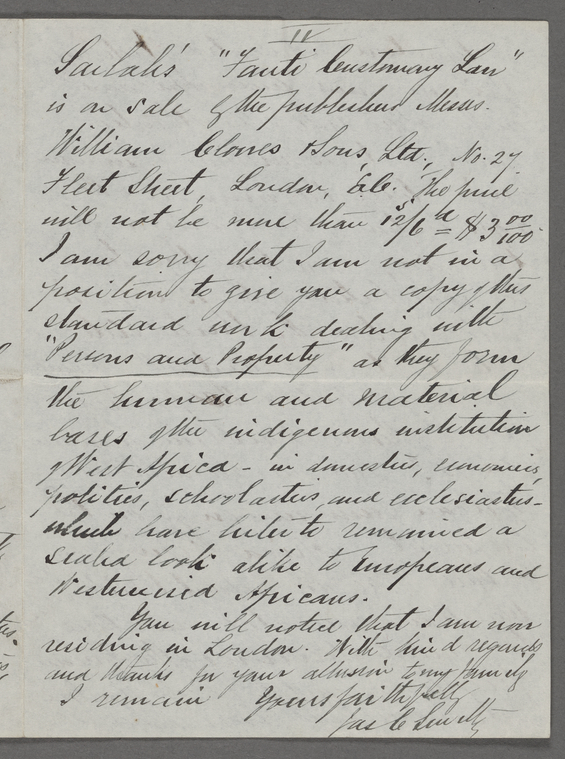 IV
Sarbah's "Fanti Customary Law"
is on sale of the publishers Messrs.
William Clowes & Sons, Ltd., No. 27
Fleet Street, London, E.C. The price
will not be more than 12s/6d = $3 00/100.
I am sorry that I am not in a
position to give you a copy of this
standard work dealing with
"Persons and Property" as they form
the human and material
bases of the indigenous institution
of West Africa - in domestics, economics,
politics, scholastics, and ecclesiastics -
which have hitherto remained a
sealed book alike to Europeans and
Westernised Africans.
You will notice that I am now
residing in London. With kind regards
and thanks for your allusion to my family
I remain Yours faithfully
Jas C